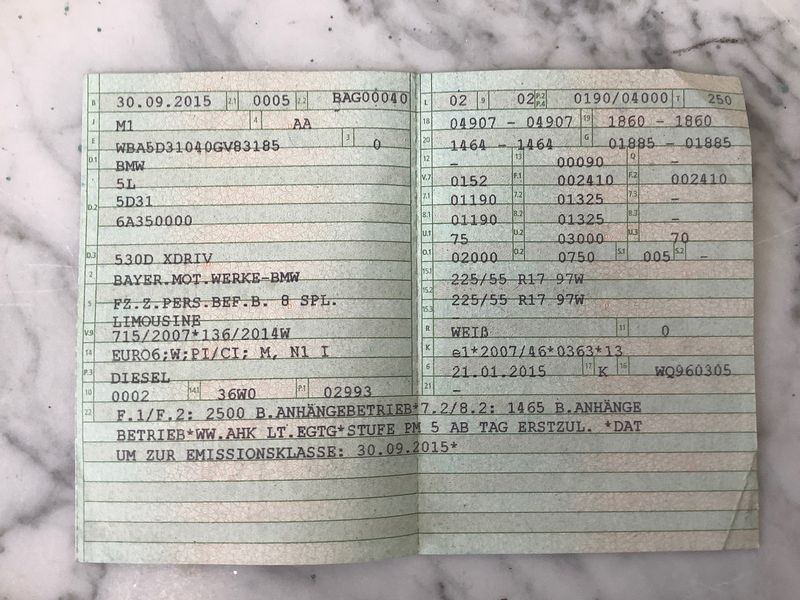 B 30.09.2015 2.1 0005 2.2 BAG00040
J M1 4 AA
E WBA5D31040GV83185 3 0
D.1 BMW
5L
D.2 5D31
6A350000
D.3 530D XDRIV
2 BAYER.MOT.WERKE-BMW
5 FZ.Z.PERS.BEF.B. 8 SPL.
LIMOUSINE
V.9 715/2007*136/2014W
14 EURO6;W;PI/CI; M, N1 I
P.3 DIESEL
10 0002 14.1 36W0 P.1 02993
L 02 9 02 P.2 P.4 0190/04000 T 250
18 04907 - 04907 19 1860 - 1860
20 1464 - 1464 G 01885 - 01885
12 - 13 00090 Q -
V.7 0152 F.1 002410 F.2 002410
7.1 01190 7.2 01325 7.3 -
8.1 01190 8.2 01325 8.3 -
U.1 75 U.2 03000 U.3 70
O.1 02000 O.2 0750 S.1 005 S.2 -
15.1 225/55 R17 97W
15.2 225/55 R17 97W
15.3
R WEIß 11 0
K e1*2007/46*0363*13
6 21.01.2015 17 K 16 WQ960305
21 -
22 F.1/F.2: 2500 B.ANHÄNGEBETRIEB*7.2/8.2: 1465 B.ANHÄNGE
BETRIEB*WW.AHK LT.EGTG*STUFE PM 5 AB TAG ERSTZUL. *DAT
UM ZUR EMISSIONSKLASSE: 30.09.2015*